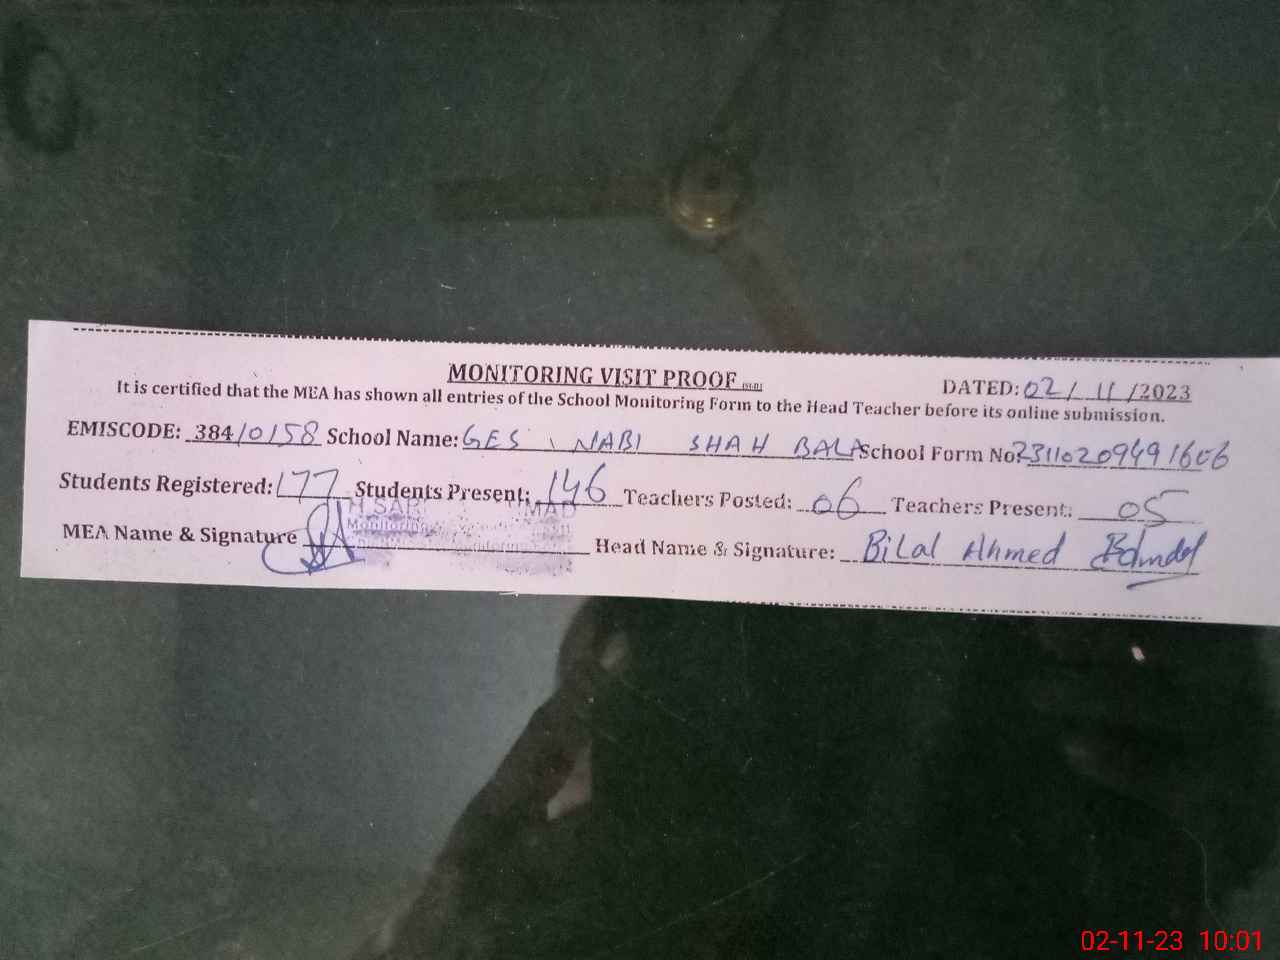 MONITORING VISIT PROOF
DATED: 02/11/2023
It is certified that the MEA has shown all entries of the School Monitoring Form to the Head Teacher before its online submission.
EMISCODE: 384/0158 School Name: GES NABI SHAH BALA School Form No: 23110209491606
Students Registered: 177 Students Present: 146 Teachers Posted: 06 Teachers Present: 05
MEA Name & Signature Monitoring Head Name & Signature: Bilal Ahmed
02-11-23 10:01